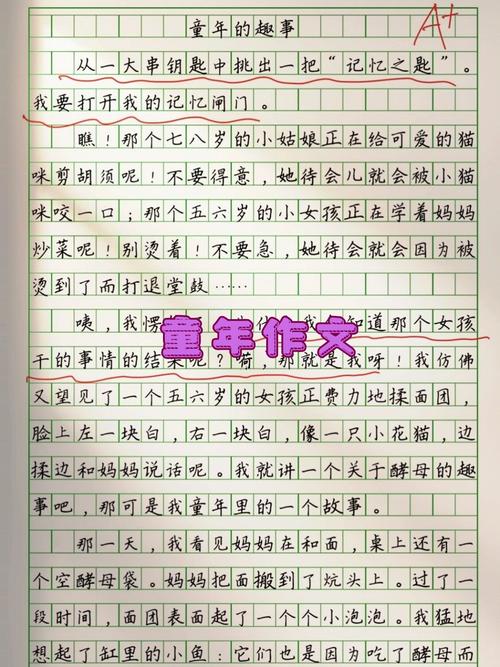 童年的趣事
A+
从一大串钥匙中挑出一把“记忆之匙”。
我要打开我的记忆闸门。
瞧！那个七八岁的小姑娘正在给可爱的猫
咪剪胡须呢！不要得意，她待会儿就会被小猫
咪咬一口；那个五六岁的小女孩正在学着妈妈
炒菜呢！别烫着！不要急，她待就会因为被
烫到了而打退堂鼓……
咦，我愣 我 知道那个女孩
干的事情的结果呢？ 那就是我呀！我仿佛
童年作文
又望见了一个五六岁的女孩正费力地揉面团，
脸上左一块白，右一块白，像一只小花猫，边
揉边和妈妈说话呢。我就讲一个关于酵母的趣
事吧，那可是我童年里的一个故事。
那一天，我看见妈妈在和面，桌上还有一
个空酵母袋。妈妈把面搬到了炕头上。过了一
段时间，面团表面起了一个个小泡泡。我猛地
想起了缸里的小鱼：它们也是因为吃了酵母而